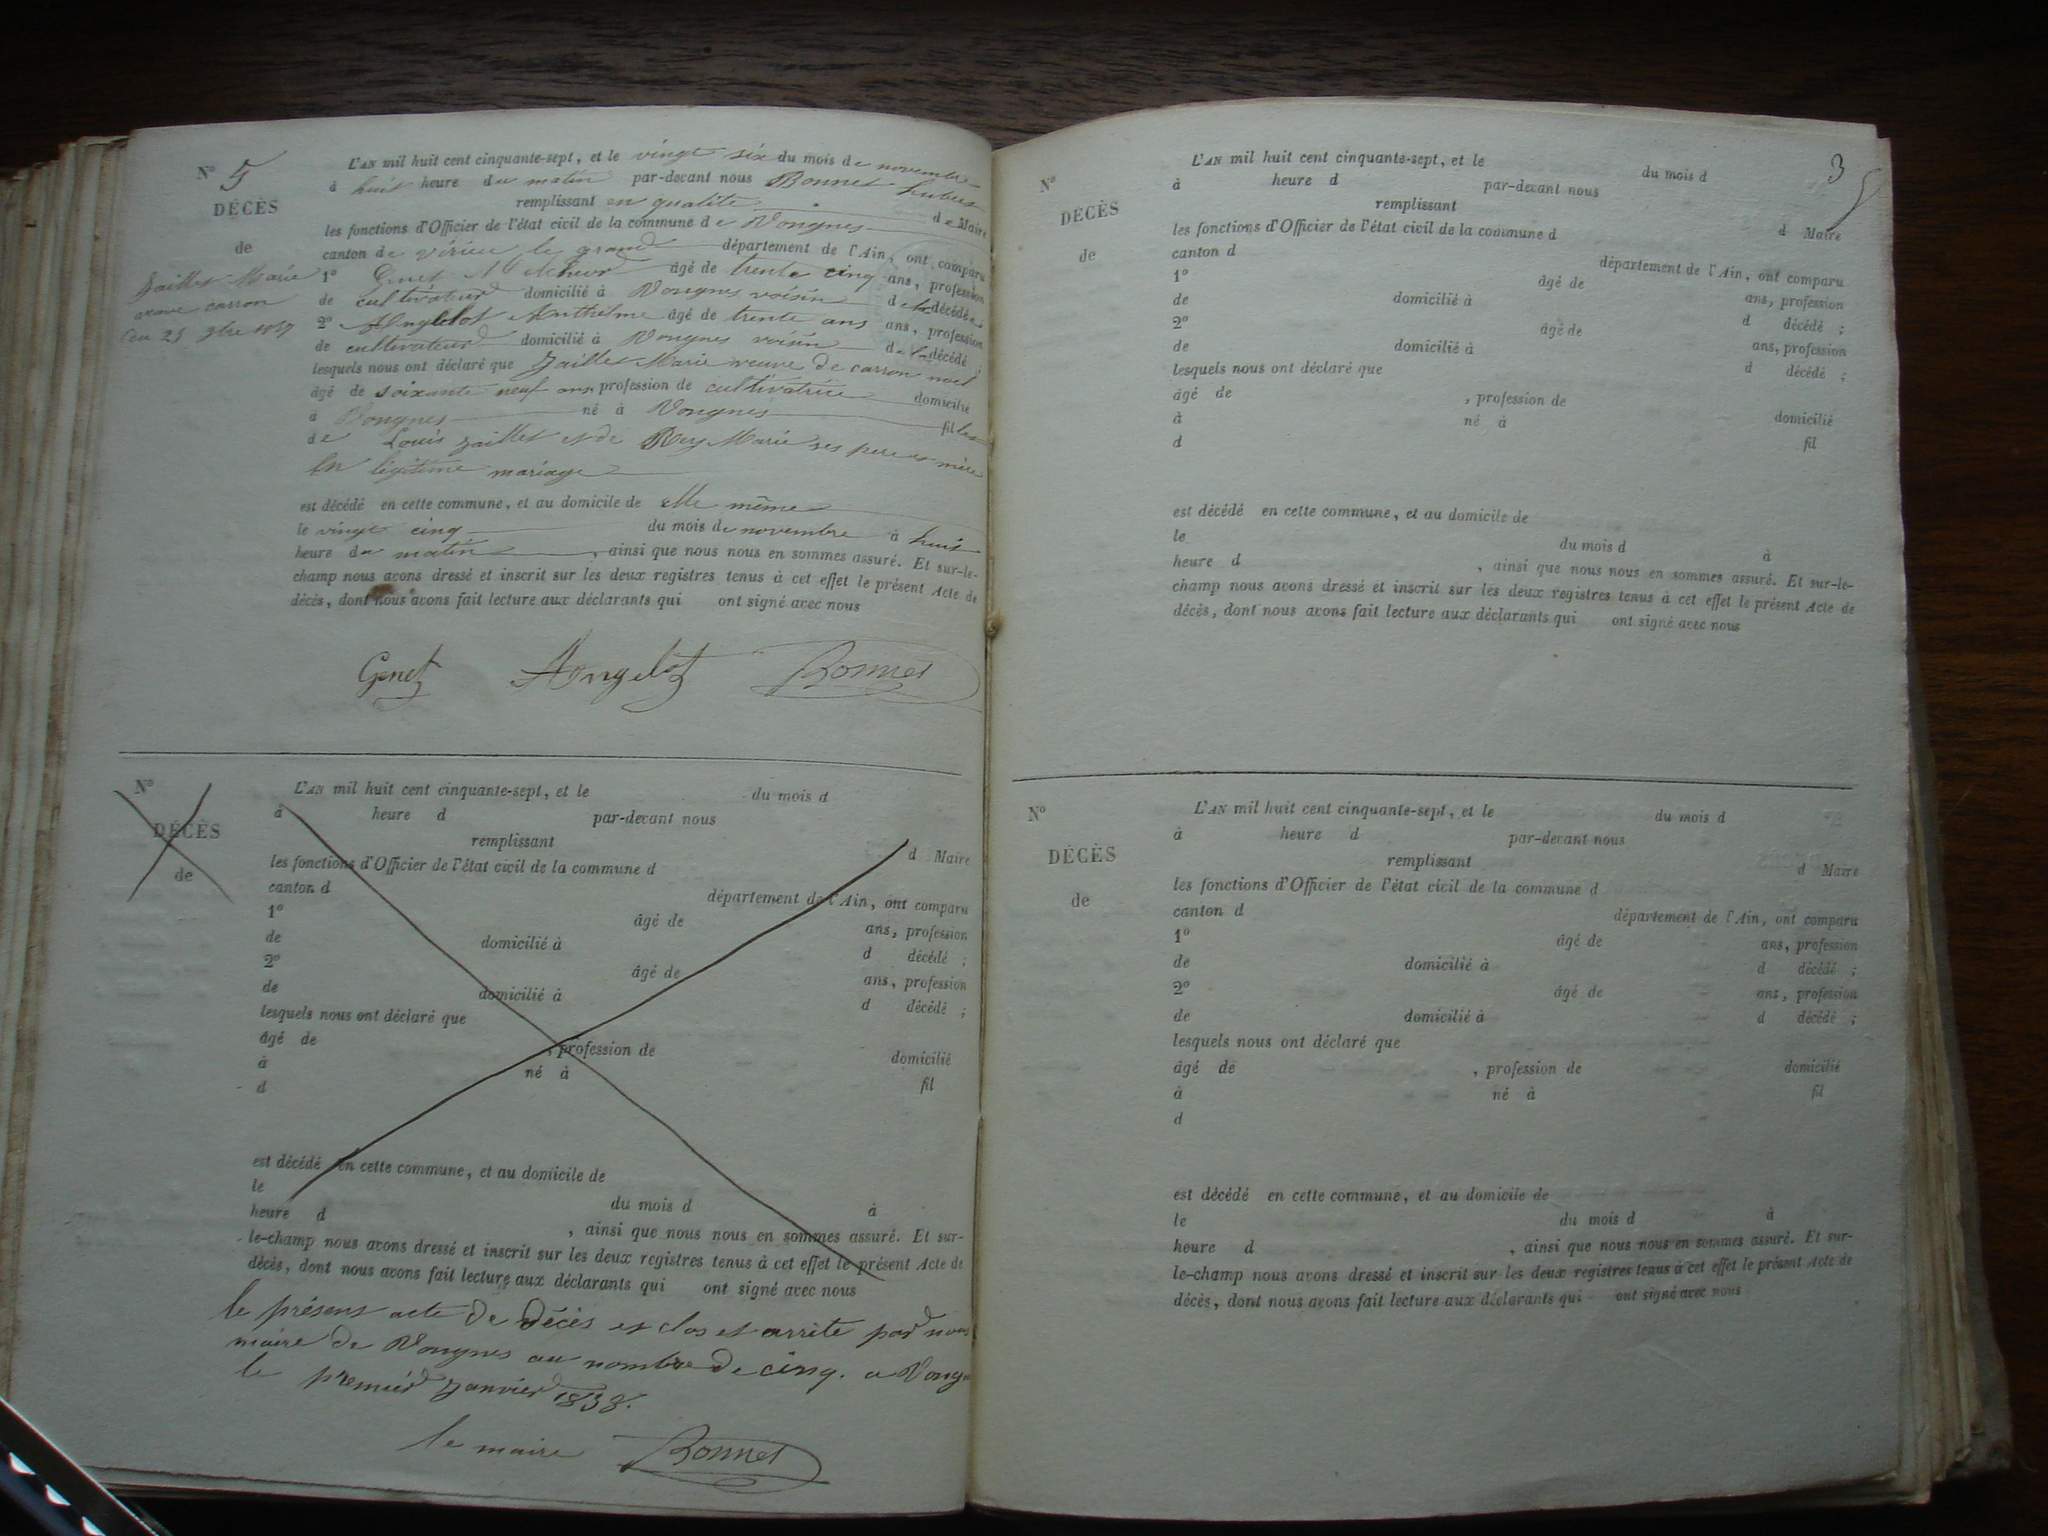 N° 5
DÉCÈS
de
Jaillet Marie
veuve carron
L'AN mil huit cent cinquante-sept, et le vingt six du mois de novembre
à huit heure du matin par-devant nous Bonnet hubert
remplissant en qualité de Maire
les fonctions d'Officier de l'état civil de la commune de Vongnes
canton de virieu le grand département de l'Ain, ont comparu
1° Genet âgé de trente cinq ans, profession
de cultivateur domicilié à Vongnes voisin de la décédée
2° Angelot Anthelme âgé de trente ans ans, profession
de cultivateur domicilié à Vongnes voisin de la décédé ;
lesquels nous ont déclaré que Jaillet Marie veuve de carron noel
âgé de soixante neuf ans, profession de cultivatrice domicilié
à Vongnes né à Vongnes fille
de Louis Jaillet et de Rey Marie ses pere et mère
en légitime mariage
est décédé en cette commune, et au domicile de elle même
le vingt cinq du mois de novembre à huit
heure du matin, ainsi que nous nous en sommes assuré. Et sur-le-
champ nous avons dressé et inscrit sur les deux registres tenus à cet effet le présent Acte de
décès, dont nous avons fait lecture aux déclarants qui ont signé avec nous
Genet Angelot Bonnet
N°
DÉCÈS
de
L'AN mil huit cent cinquante-sept, et le du mois d
à heure d par-devant nous
remplissant d Maire
les fonctions d'Officier de l'état civil de la commune d
canton d département de l'Ain, ont comparu
1° âgé de ans, profession
de domicilié à d décédé ;
2° âgé de ans, profession
de domicilié à d décédé ;
lesquels nous ont déclaré que
âgé de , profession de domicilié
à né à fil
d
est décédé en cette commune, et au domicile de
le du mois d à
heure d , ainsi que nous nous en sommes assuré. Et sur-
le-champ nous avons dressé et inscrit sur les deux registres tenus à cet effet le présent Acte de
décès, dont nous avons fait lecture aux déclarants qui ont signé avec nous
le présent acte de décès et clos et arrité par nous
maire de Vongnes au nombre de cinq. a Vongn
le premier Janvier 1838.
le maire Bonnet
3
N°
DÉCÈS
de
L'AN mil huit cent cinquante-sept, et le du mois d
à heure d par-devant nous
remplissant d Maire
les fonctions d'Officier de l'état civil de la commune d
canton d département de l'Ain, ont comparu
1° âgé de ans, profession
de domicilié à d décédé ;
2° âgé de ans, profession
de domicilié à d décédé ;
lesquels nous ont déclaré que
âgé de , profession de domicilié
à né à fil
d
est décédé en cette commune, et au domicile de
le du mois d à
heure d , ainsi que nous nous en sommes assuré. Et sur-le-
champ nous avons dressé et inscrit sur les deux registres tenus à cet effet le présent Acte de
décès, dont nous avons fait lecture aux déclarants qui ont signé avec nous
N°
DÉCÈS
de
L'AN mil huit cent cinquante-sept, et le du mois d
à heure d par-devant nous
remplissant d Maire
les fonctions d'Officier de l'état civil de la commune d
canton d département de l'Ain, ont comparu
1° âgé de ans, profession
de domicilié à d décédé ;
2° âgé de ans, profession
de domicilié à d décédé ;
lesquels nous ont déclaré que
âgé de , profession de domicilié
à né à fil
d
est décédé en cette commune, et au domicile de
le du mois d à
heure d , ainsi que nous nous en sommes assuré. Et sur-
le-champ nous avons dressé et inscrit sur les deux registres tenus à cet effet le présent Acte de
décès, dont nous avons fait lecture aux déclarants qui ont signé avec nous